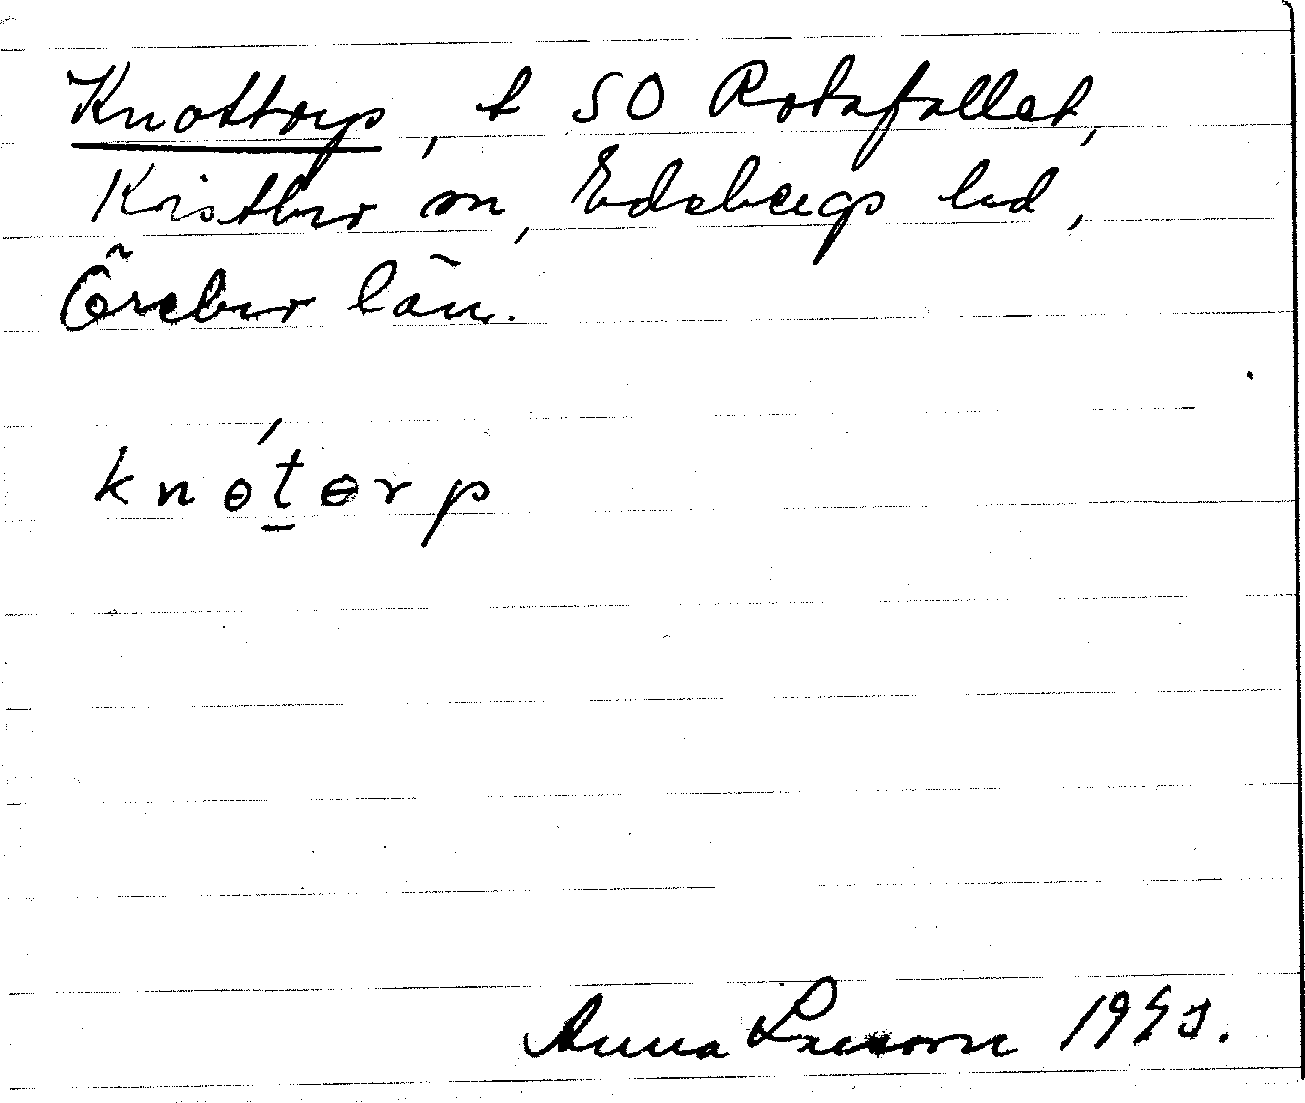 Knottorp, t SO Rotafallet,
Kvistbro sn, Edsbergs hd,
Örebro län.
knɵ́t̲ɵrp
Anna Larsson